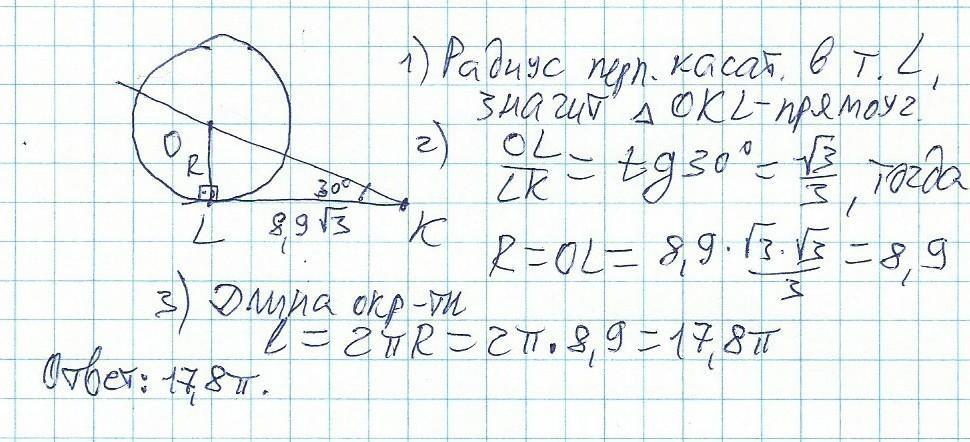 1) Радиус перп. касат. в т. L,
значит △ OKL-прямоуг.
2) OL/LK = tg 30° = √3/3, тогда
O
R
30°
L
8,9 √3
K
R = OL = 8,9 · √3 · √3/3 = 8,9
3) Длина окр-ти
l = 2πR = 2π · 8,9 = 17,8π
Ответ: 17,8π.